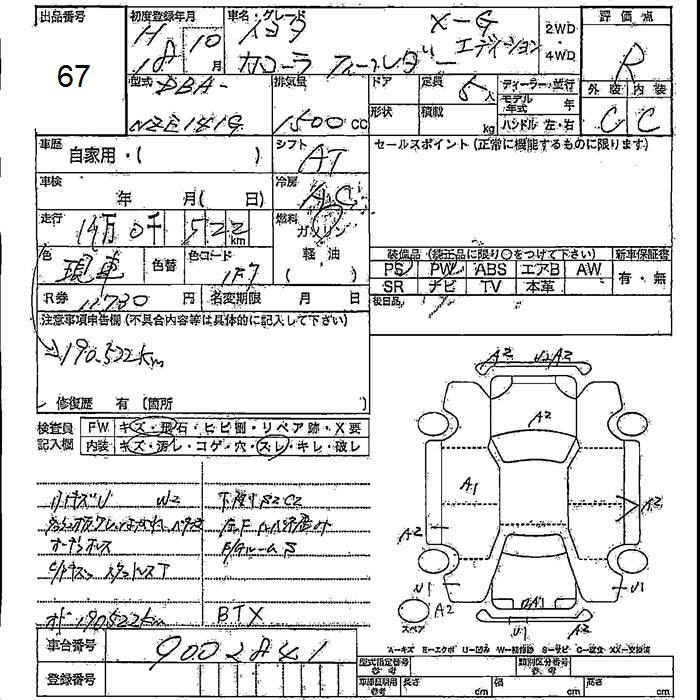 出品番号
67
初度登録年月
H 18年 10月
車名・グレード
トヨタ
X-G
カローラ フィールダー
エディション
2WD
4WD
評価点
R
外装 内装
C C
型式 DBA-
NZE141G
排気量
1500 CC
ドア
定員 5人
形状
積載 kg
ディーラー・並行
モデル年式 年
ハンドル 左・右
車歴
自家用・( )
シフト
AT
セールスポイント (正常に機能するものに限ります)
車検
年 月( 日)
冷房
AC
走行
19万0千522km
燃料
ガソリン
軽・油
( )
色
現車
色替
色コード
1F7
装備品 (純正品に限り○をつけて下さい)
新車保証書
PS PW ABS エアB AW
SR ナビ TV 本革
有・無
R券 11780 円
名変期限 月 日
後日品
注意事項申告欄 (不具合内容等は具体的に記入して下さい)
190,522km
修復歴 有 〔箇所 〕
検査員
記入欄
FW キズ・飛石・ヒビ割・リペア跡・X要
内装 キズ・汚レ・コゲ・穴・スレ・キレ・破レ
W2
下廻りS2C2
スタッドレスT
オド190,522km
BTX
A2 U2 A2
A2
A1
A2
A2
U1
U1
A2
スペア
U1
A2
A-キズ E-エクボ U-凹み W-補修跡 S-サビ C-腐食 XX-交換済
車台番号 9002841
登録番号
型式指定番号
参考
類別区分番号
参考
車庫証明用
参考
長さ cm
幅 cm
高さ cm